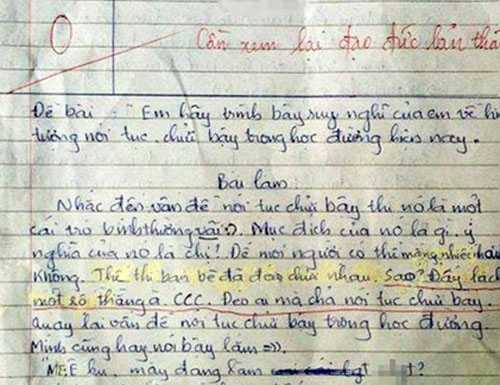 0
Cần xem lại đạo đức bản thâ
Đề bài : " Em hãy trình bày suy nghĩ của em về hi
tượng nói tục chửi bậy trong học đường hiện nay.
Bài làm
Nhắc đến vấn đề nói tục chửi bậy thì nó là một
cái trò bình thường vãi :). Mục đích của nó là gì. ý
nghĩa của nó là chi! Để mọi người có thể mắng nhiếc nhau
không. Thế thì bạn bè đã đéo chửi nhau. Sao? Đấy là cá
một số thằng à. CCC. Đéo ai mà chả nói tục chửi bậy.
Quay lại vấn đề nói tục chửi bậy trong học đường.
Mình cũng hay nói bậy lắm =)).
"MẸ E ku, mày đang làm t?